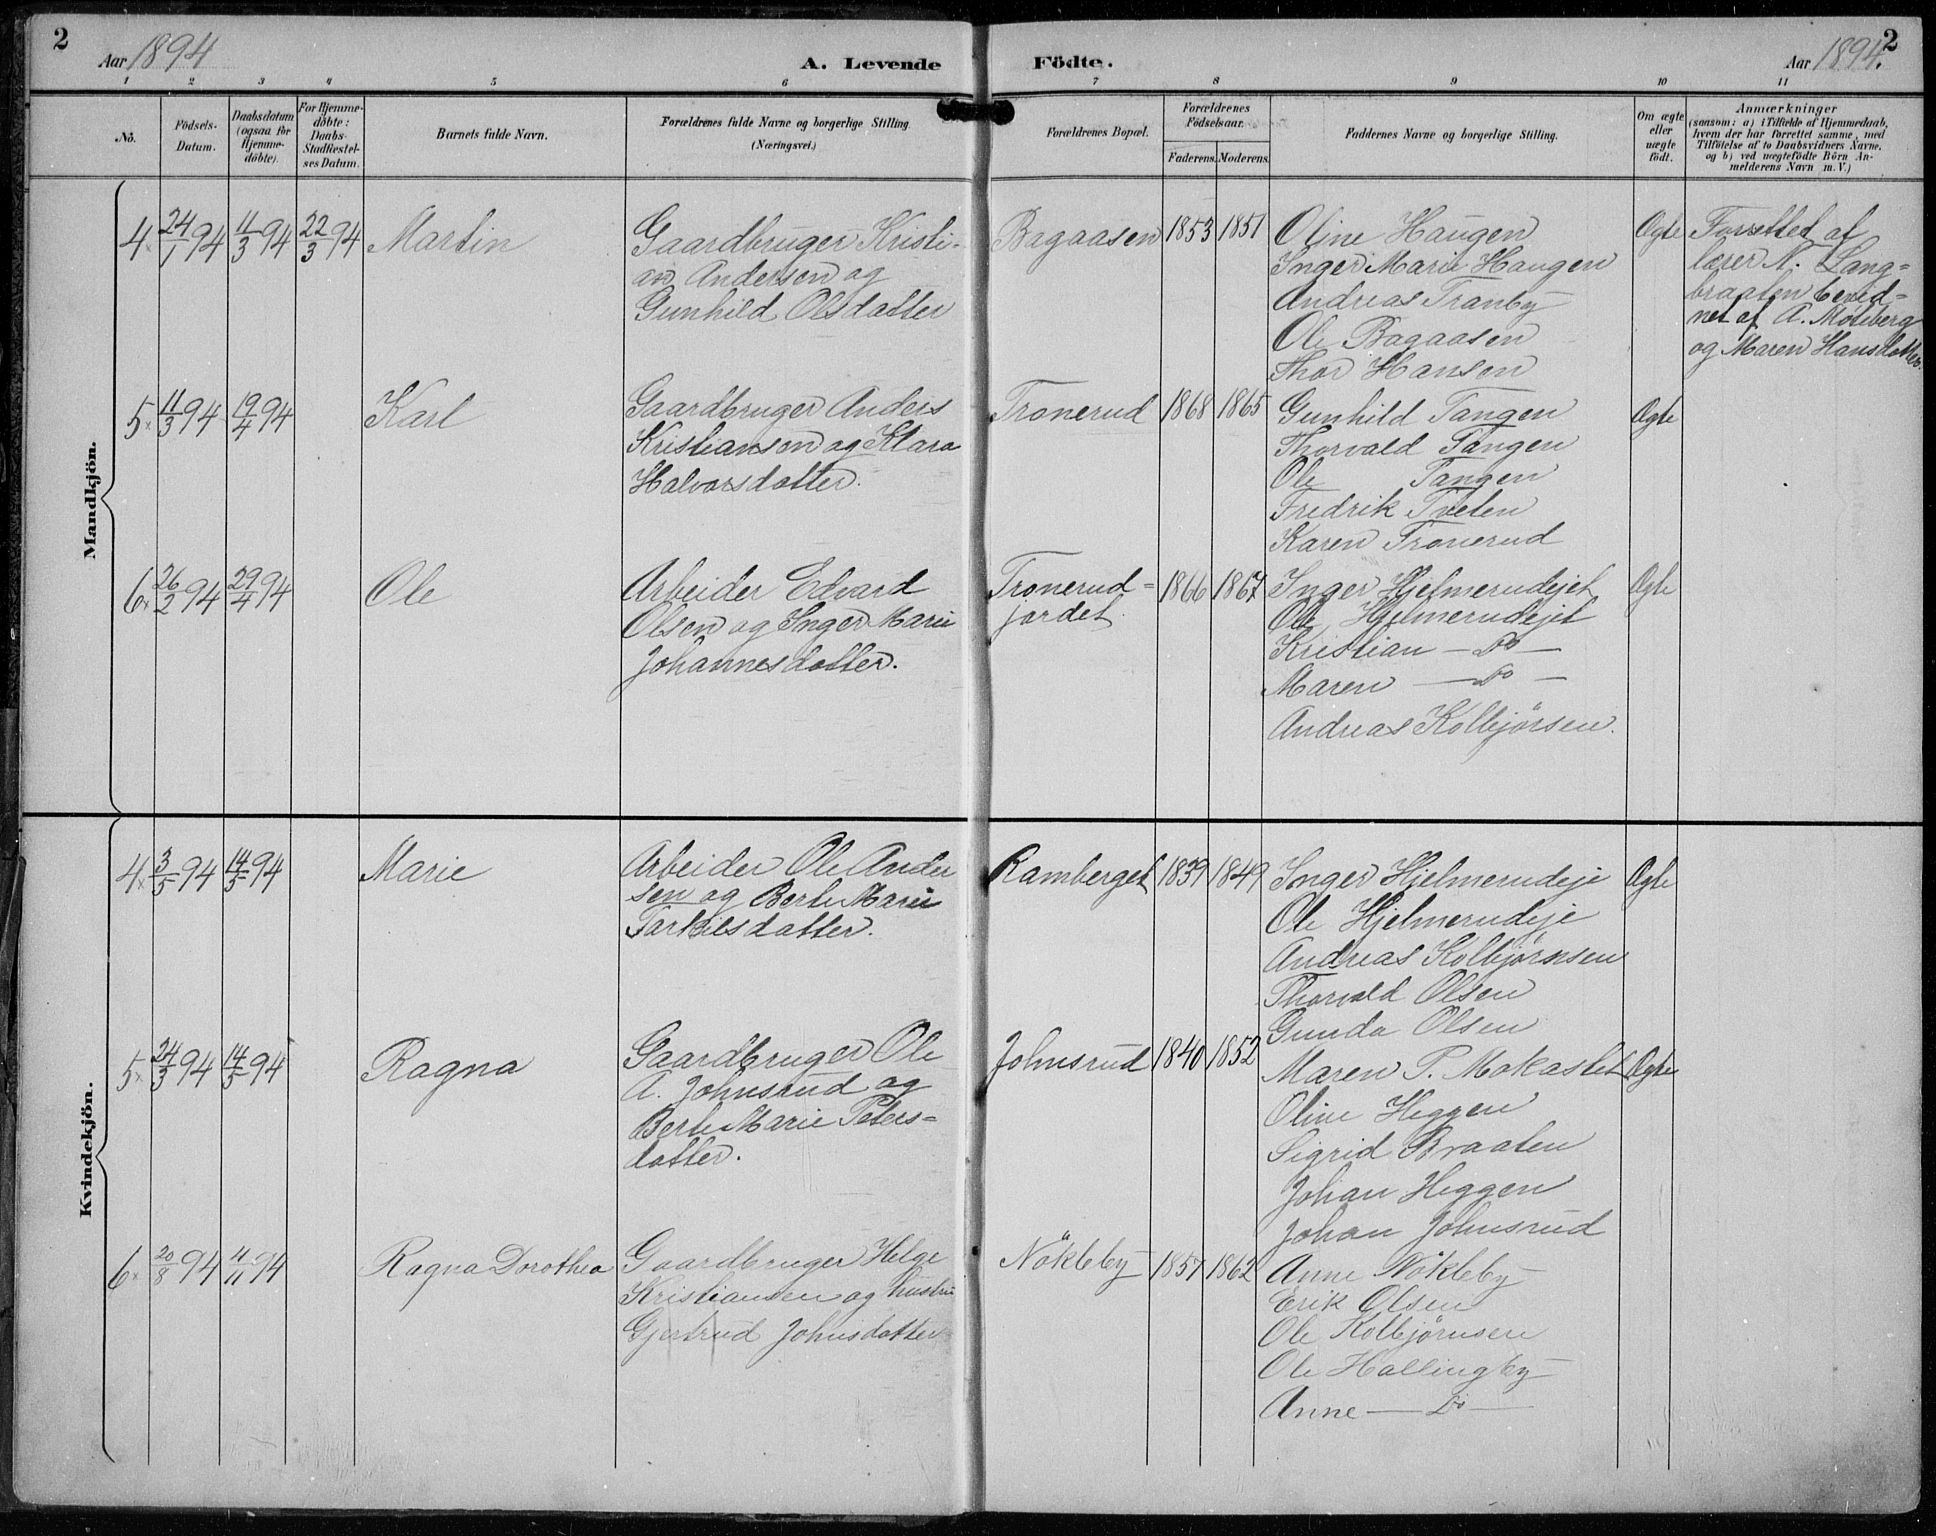 2
Aar 1894
A. Levende Födte.
Aar 1894.
2
1 2 3 4 5 6 7 8 9 10 11
No.
Födsels-
Datum.
Daabsdatum
(ogsaa for
Hjemme-
döbte).
For Hjemme-
döbte:
Daabs-
Stadfæstel-
ses Datum.
Barnets fulde Navn.
Forældrenes fulde Navne og borgerlige Stilling.
(Næringsvei.)
Forældrenes Bopæl.
Forældrenes
Födselsaar.
Faderens. Moderens.
Faddernes Navne og borgerlige Stilling.
Om ægte
eller
uægte
födt.
Anmærkninger
(saasom: a) i Tilfælde af Hjemmedaab,
hvem der har forrettet samme, med
Tilföielse af to Daabsvidners Navne,
og b) ved uægtefödte Börn An-
melderens Navn m. V.)
Mandkjön.
4 24/1 94 11/3 94 22/3 94 Martin
Gaardbruger Kristi-
an Andersen og
Gunhild Olsdatter
Bagaasen 1853 1851
Oline Haugen
Inger Marie Haugen
Andreas Tranby
Ole Bagaasen
Thor Hansen
Ægte
Forrettet af
lærer N. Lang-
braaten bevid-
net af A. Moseberg
og Maren Hansdatter.
5 11/3 94 19/4 94 Karl
Gaardbruger Anders
Kristiansen og Klara
Halvorsdatter.
Tronerud 1868 1865
Gunhild Tangen
Thorvald Tangen
Ole Tangen
Fredrik Tveten
Karen Tronerud
Ægte
6 26/2 94 29/4 94 Ole
Arbeider Edvard
Olsen og Inger Marie
Johannesdatter.
Tronerud-
jordet. 1866 1867
Inger Hjelmerudejet
Ole Hjelmerudejet
Kristian — Do —
Maren — Do —
Andreas Kolbjørsen.
Ægte
Kvindekjön.
4 3/5 94 14/5 94 Marie
Arbeider Ole Ander
sen og Berte Marie
Tarkilsdatter.
Ramberget 1839 1849
Inger Hjelmerudeje
Ole Hjelmerudeje
Andreas Kolbjørnsen
Thorvald Olsen
Gunda Olsen
Ægte
5 24/3 94 14/5 94 Ragna
Gaardbruger Ole
A. Johnsrud og
Berte Marie Peters-
datter.
Johnsrud 1840 1852
Maren P. Mokastet
Oline Heggen
Sigrid Braaten
Johan Heggen
Johan Johnsrud
Ægte
6 20/8 94 4/11 94 Ragna Dorothea
Gaardbruger Helge
Kristiansen og hustru
Gjertrud Johnsdatter
Nökleby 1857 1862
Anne Nökleby
Erik Olsen
Ole Kolbjørnsen
Ole Hallingby
Anne — Do —